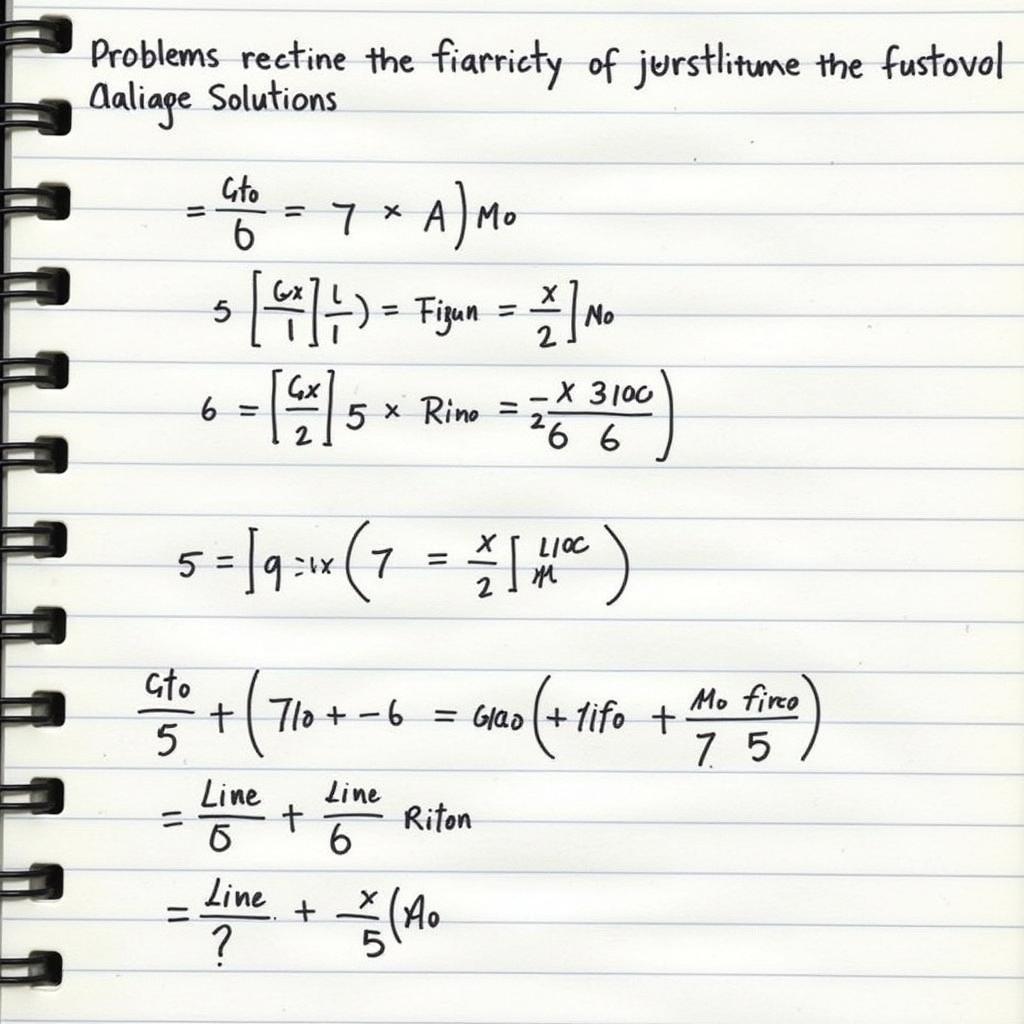 Problems rectine the fiarricty of jurstlitume the fustovol
Aaliage Solutions
= Gto/6 = 7 × A) Mo
5 [Gx/1] L/1) = Figun = x/2] No
6 = [Gx/2] 5 × Rino = -x 3100/ 2 6 6)
5 = [9 = (7 = x/2]
Gto/5 + (7lo + -6 = Glao (+ 1ifo + Mo firco/7. 5)
= Line/6 + Line/6 Riton
= Line/? + x/5 (Ao